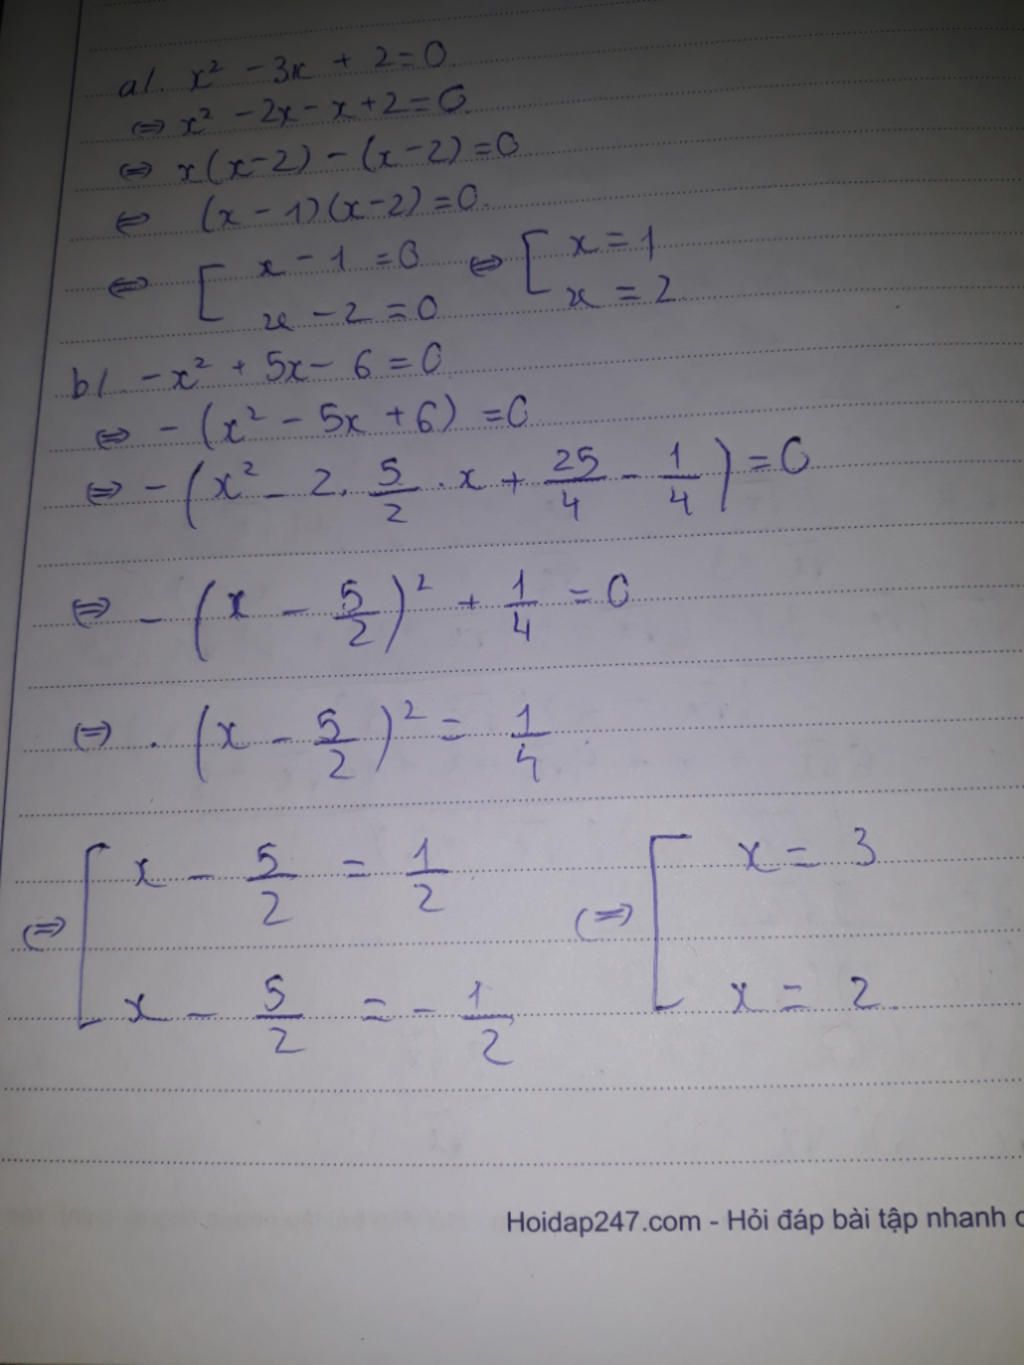 a/. x² - 3x + 2 = 0
⇔ x² - 2x - x + 2 = 0
⇔ x(x-2) - (x-2) = 0
⇔ (x - 1)(x-2) = 0.
⇔ [ x - 1 = 0 ⇔ [ x = 1
x - 2 = 0 x = 2
b/. -x² + 5x - 6 = 0
⇔ - (x² - 5x + 6) = 0
⇔ - (x² - 2. 5/2 . x + 25/4 - 1/4) = 0
⇔ - (x - 5/2)² + 1/4 = 0
⇔ . (x - 5/2)² = 1/4
⇔ [ x - 5/2 = 1/2 ⇔ [ x = 3
x - 5/2 = - 1/2 x = 2.
Hoidap247.com - Hỏi đáp bài tập nhanh c